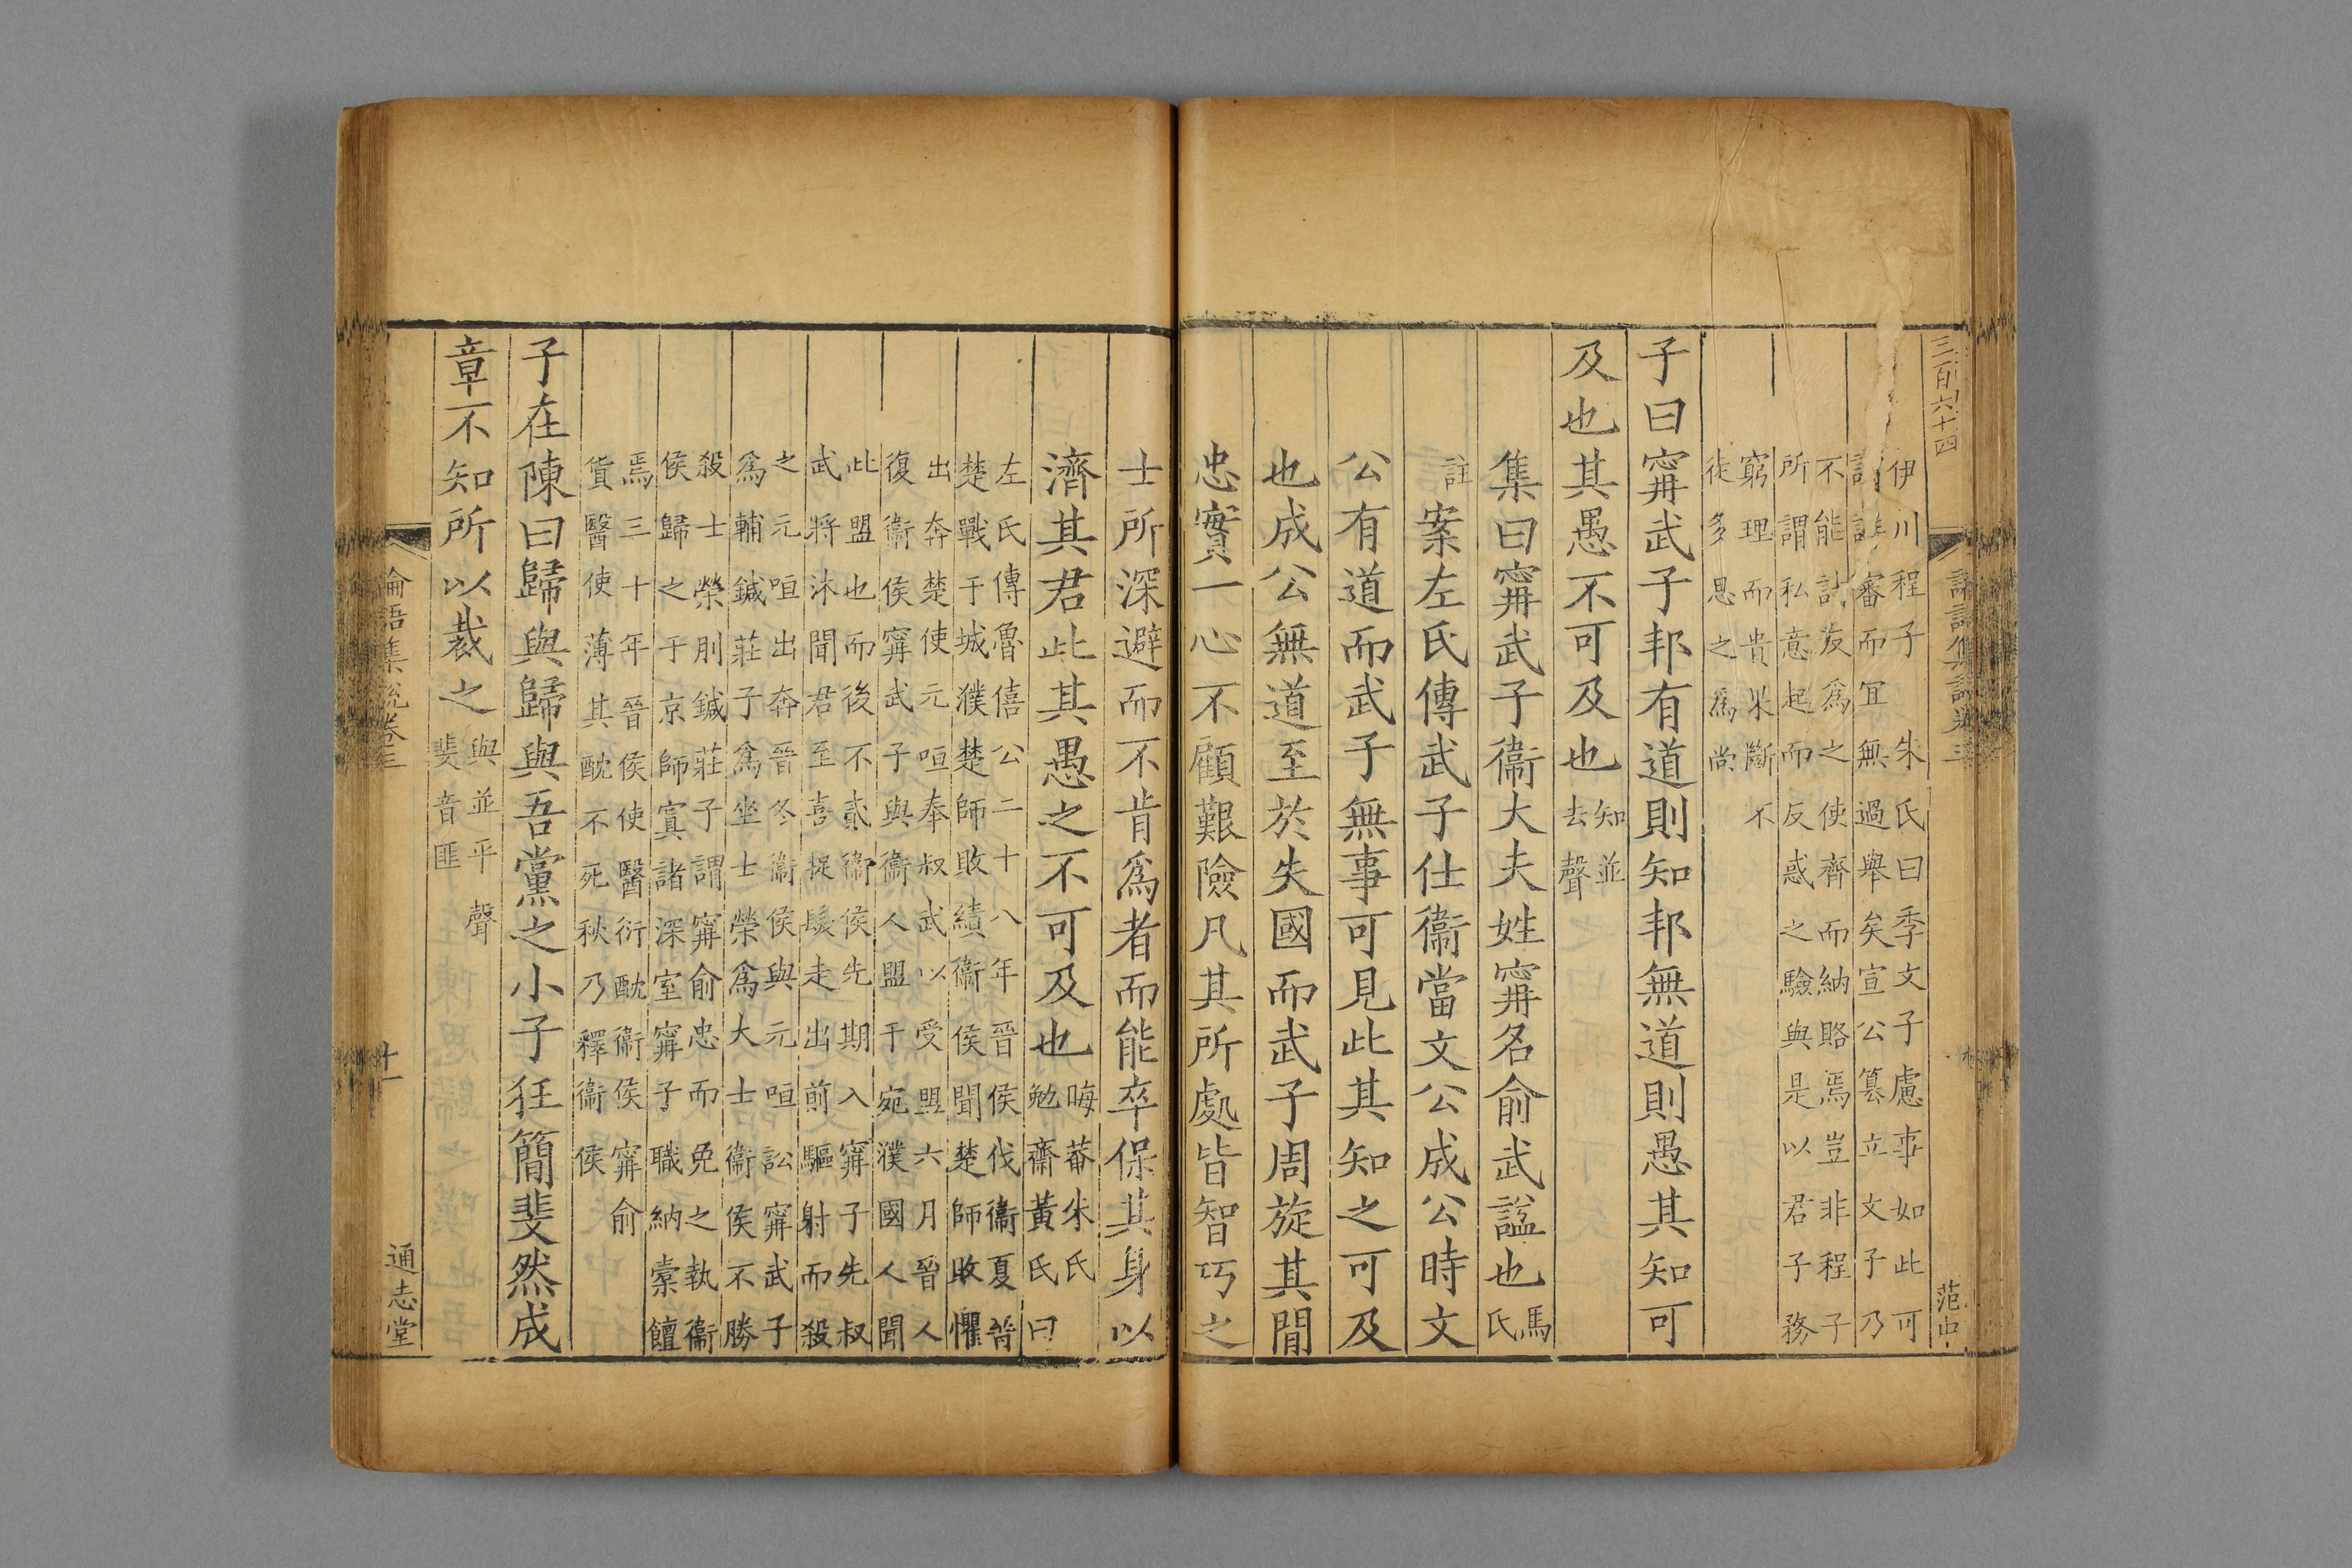 三百六十四
范中
伊川程子　朱氏曰季文子慮事如此可
詳審而冝無過舉矣宣公篡立文子乃
不能討反爲之使齊而納賂焉豈非程子
所謂私意起而反惑之驗與是以君子務
窮理而貴果斷不
徒多思之爲尚
子曰甯武子邦有道則知邦無道則愚其知可
及也其愚不可及也
知並
去聲
集曰甯武子衞大夫姓甯名俞武諡也
馬
氏
註
案左氏傳武子仕衞當文公成公時文
公有道而武子無事可見此其知之可及
也成公無道至於失國而武子周旋其間
忠實一心不顧艱險凡其所處皆智巧之
士所深避而不肯爲者而能卒保其身以
濟其君此其愚之不可及也
晦菴朱氏
勉齋黃氏曰
左氏傳魯僖公二十八年晉侯伐衞夏晉
楚戰于城濮楚師敗績衞侯聞楚師敗懼
出奔楚使元咺奉叔武以受盟六月晉人
復衞侯甯武子與衞人盟于宛濮國人聞
此盟也而後不貳衞侯先期入甯子先叔
武將沐聞君至喜捉髮走出前驅射而殺
之元咺出奔晉冬衞侯與元咺訟甯武子
爲輔鍼莊子爲坐士榮爲大士衞侯不勝
殺士榮刖鍼莊子謂甯俞忠而免之執衞
侯歸之于京師寘諸深室甯子職納橐饘
焉三十年晉侯使醫衍酖衞侯甯俞
貨醫使薄其酖不死秋乃釋衞侯
子在陳曰歸與歸與吾黨之小子狂簡斐然成
章不知所以裁之
與並平聲
斐音匪
論語集說卷三
十一
通志堂